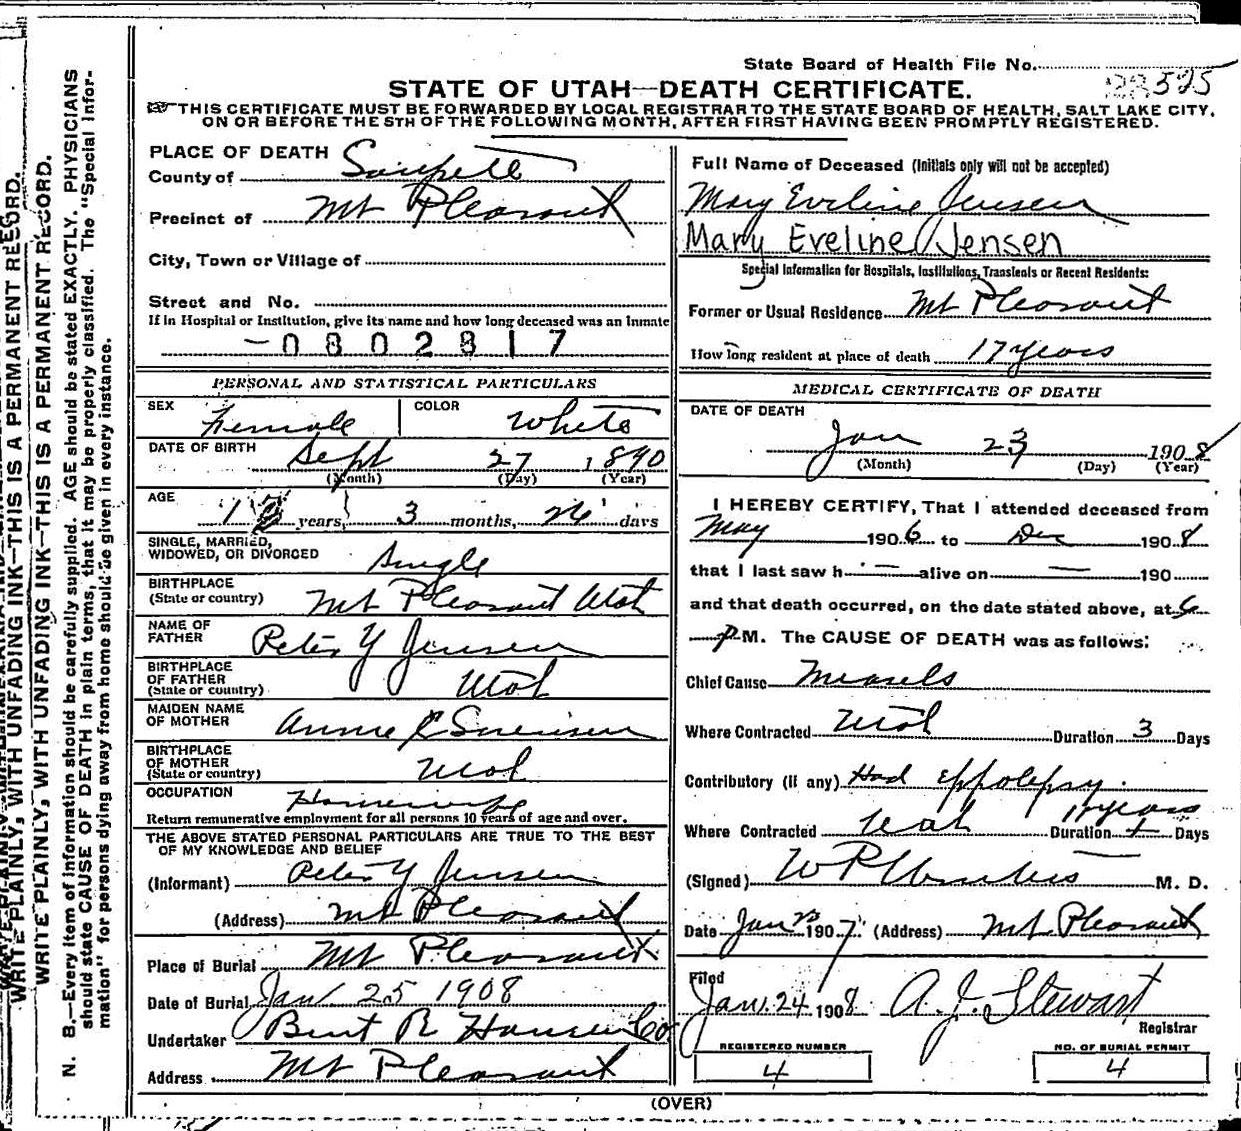 State Board of Health File No. 22525
STATE OF UTAH—DEATH CERTIFICATE.
THIS CERTIFICATE MUST BE FORWARDED BY LOCAL REGISTRAR TO THE STATE BOARD OF HEALTH, SALT LAKE CITY,
ON OR BEFORE THE 5TH OF THE FOLLOWING MONTH, AFTER FIRST HAVING BEEN PROMPTLY REGISTERED.
PLACE OF DEATH
County of Sanpete
Precinct of Mt Pleasant
City, Town or Village of
Street and No.
If in Hospital or Institution, give its name and how long deceased was an inmate
0802817
PERSONAL AND STATISTICAL PARTICULARS
SEX Female COLOR White
DATE OF BIRTH Sept 27 1890
(Month) (Day) (Year)
AGE
years, 3 months, 26 days
SINGLE, MARRIED,
WIDOWED, OR DIVORCED Single
BIRTHPLACE
(State or country) Mt Pleasant Utah
NAME OF
FATHER Peter Y Jensen
BIRTHPLACE
OF FATHER
(State or country) Utah
MAIDEN NAME
OF MOTHER Annie C Sorensen
BIRTHPLACE
OF MOTHER
(State or country) Utah
OCCUPATION Housewife
Return remunerative employment for all persons 10 years of age and over.
THE ABOVE STATED PERSONAL PARTICULARS ARE TRUE TO THE BEST
OF MY KNOWLEDGE AND BELIEF
(Informant) Peter Y Jensen
(Address) Mt Pleasant
Place of Burial Mt Pleasant
Date of Burial Jan 25 1908
Undertaker Bent R Hansen Co
Address Mt Pleasant
Full Name of Deceased (Initials only will not be accepted)
Mary Eveline Jensen
Mary Eveline Jensen
Special Information for Hospitals, Institutions, Transients or Recent Residents:
Former or Usual Residence Mt Pleasant
How long resident at place of death 17 years
MEDICAL CERTIFICATE OF DEATH
DATE OF DEATH
Jan 23 1908
(Month) (Day) (Year)
I HEREBY CERTIFY, That I attended deceased from
May 1906 to Dec 1908
that I last saw h — alive on — 190
and that death occurred, on the date stated above, at 6
P M. The CAUSE OF DEATH was as follows:
Chief Cause Measels
Where Contracted Utah Duration 3 Days
Contributory (if any) Had Eppolepsy.
17 years
Where Contracted Utah Duration Days
(Signed) M. D.
Date Jan 23 1907 (Address) Mt Pleasant
Filed
Jan. 24 1908 A. J. Stewart
Registrar
REGISTERED NUMBER NO. OF BURIAL PERMIT
4 4
(OVER)
WRITE PLAINLY, WITH UNFADING INK—THIS IS A PERMANENT RECORD.
WRITE PLAINLY, WITH UNFADING INK—THIS IS A PERMANENT RECORD.
N. B.—Every item of information should be carefully supplied. AGE should be stated EXACTLY. PHYSICIANS
should state CAUSE OF DEATH in plain terms, that it may be properly classified. The "Special Infor-
mation" for persons dying away from home should be given in every instance.